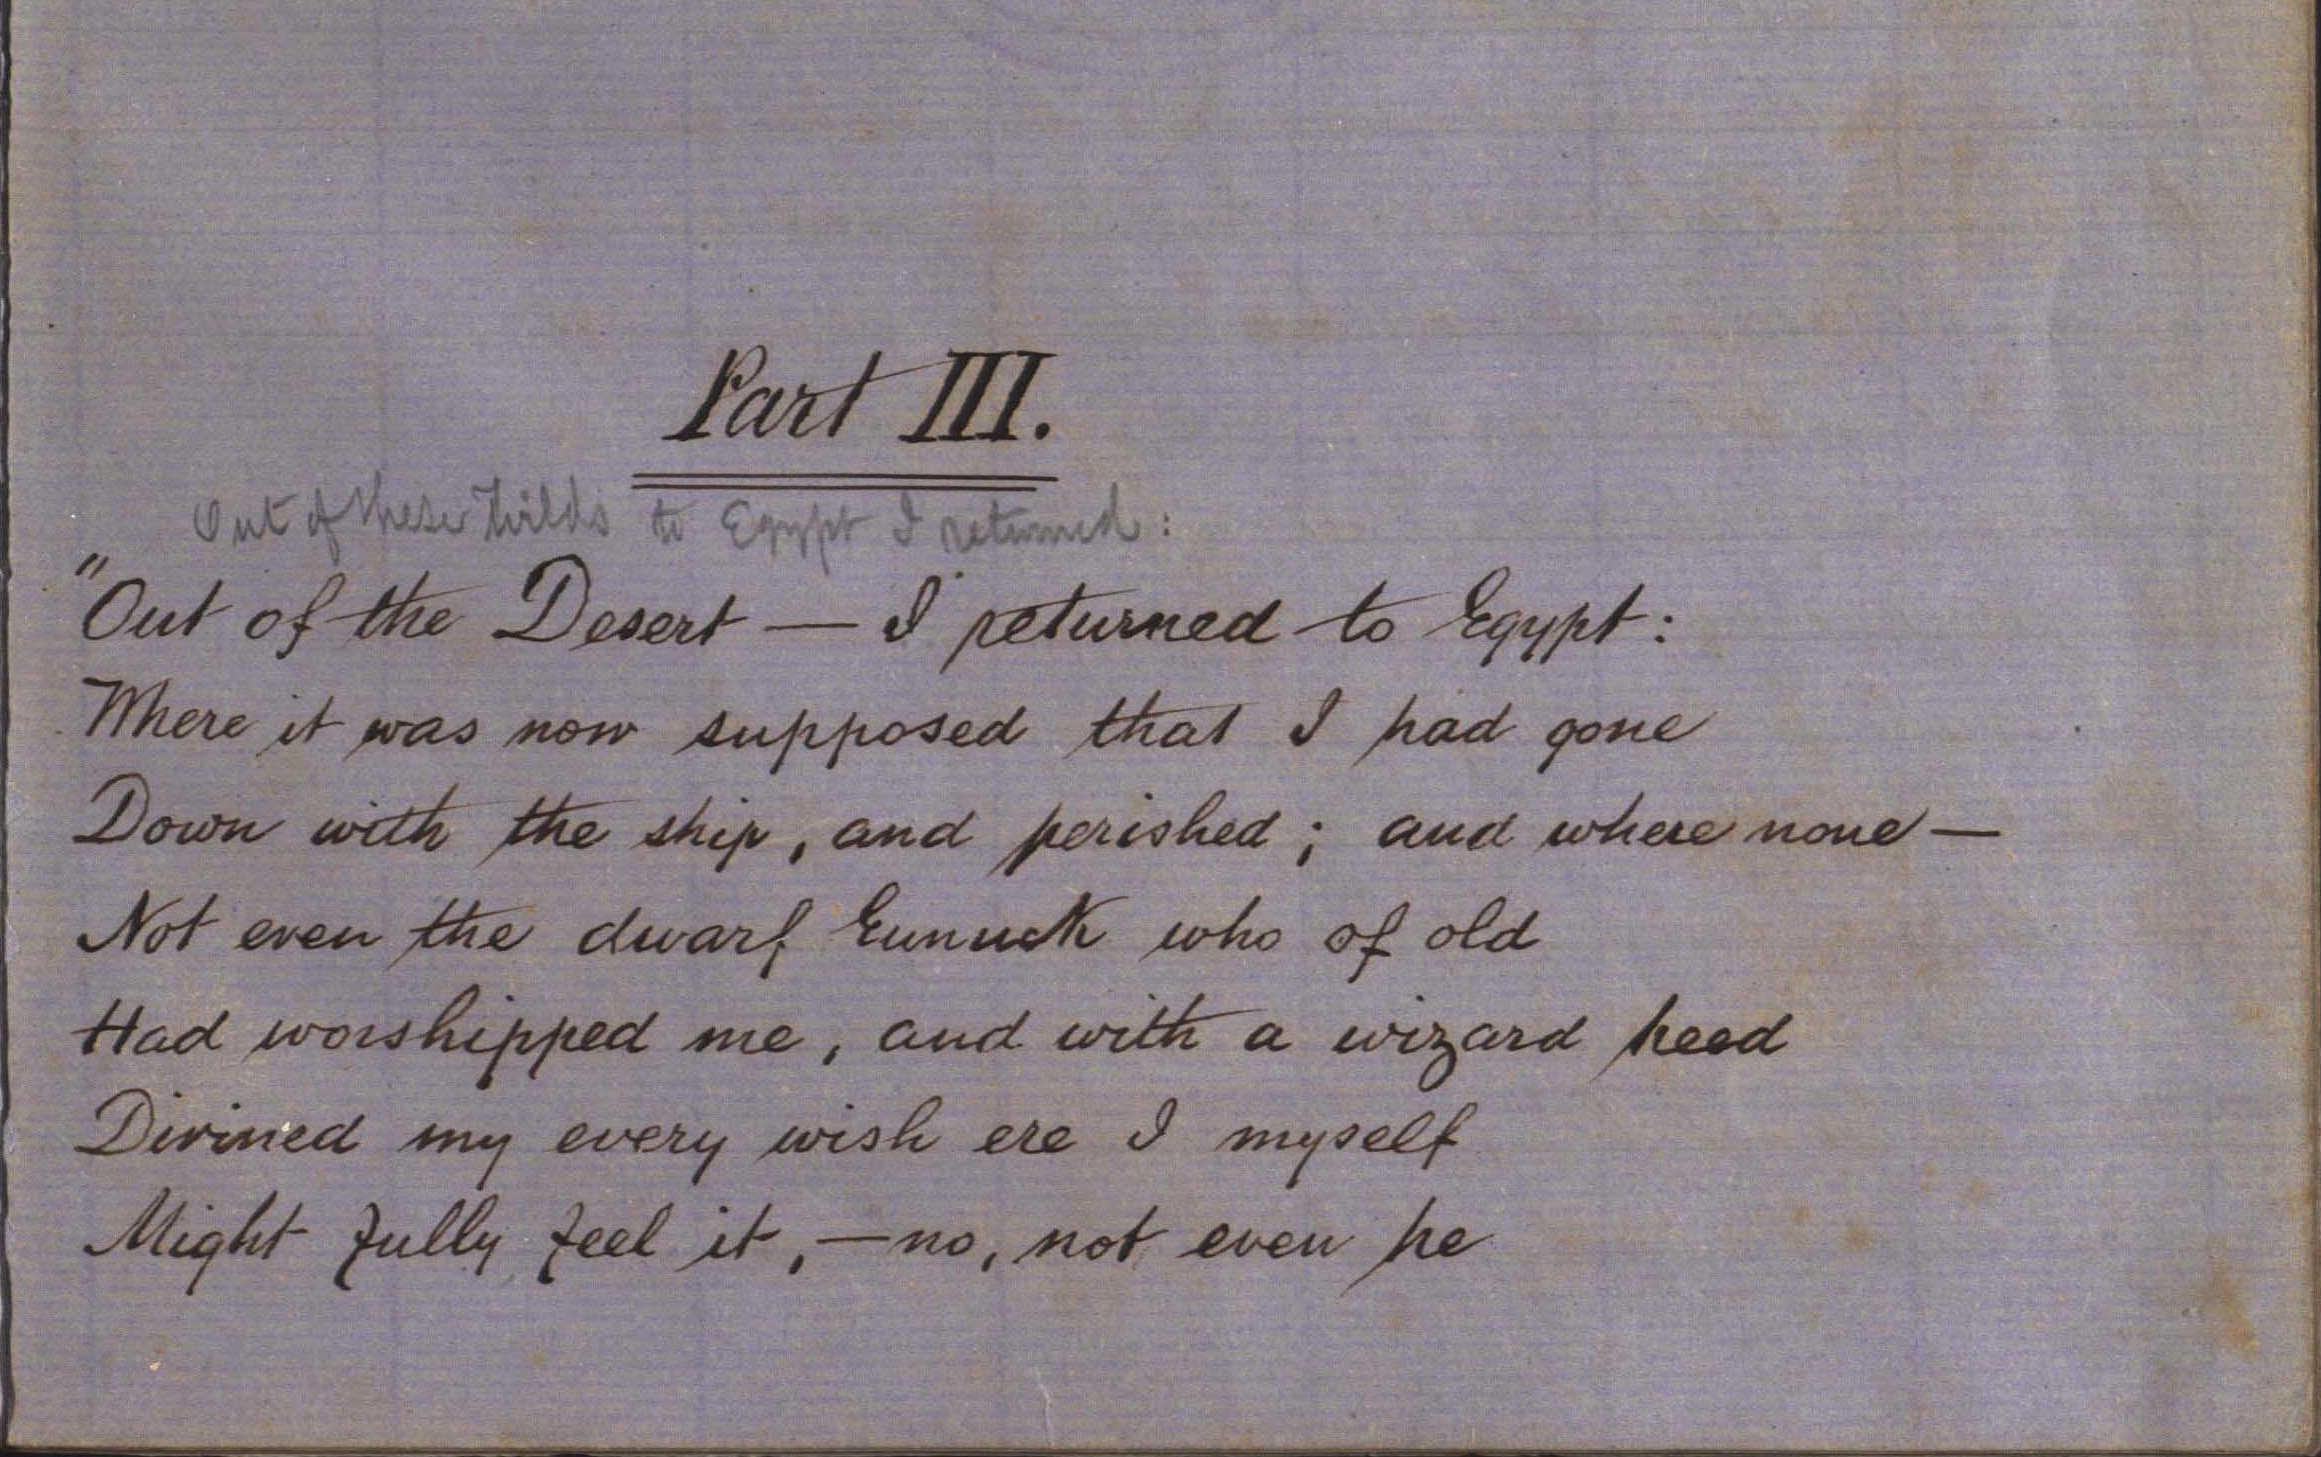 Part III.
Out of these Wilds to Egypt I returned:
"Out of the Desert — I returned to Egypt:
Where it was now supposed that I had gone
Down with the ship, and perished; and where none —
Not even the dwarf Eunuck who of old
Had worshipped me, and with a wizard heed
Divined my every wish ere I myself
Might fully feel it, — no, not even he